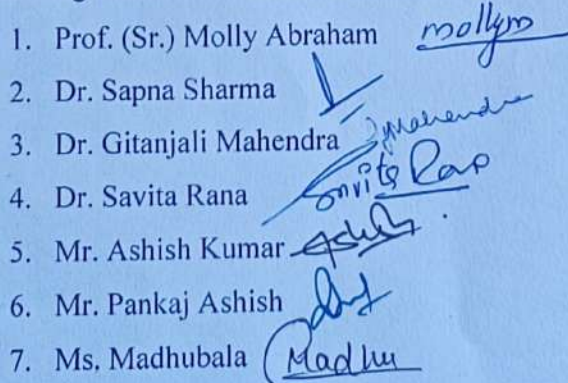 1. Prof. (Sr.) Molly Abraham mollym
2. Dr. Sapna Sharma
3. Dr. Gitanjali Mahendra GMahendra
4. Dr. Savita Rana
5. Mr. Ashish Kumar
6. Mr. Pankaj Ashish
7. Ms. Madhubala Madhu